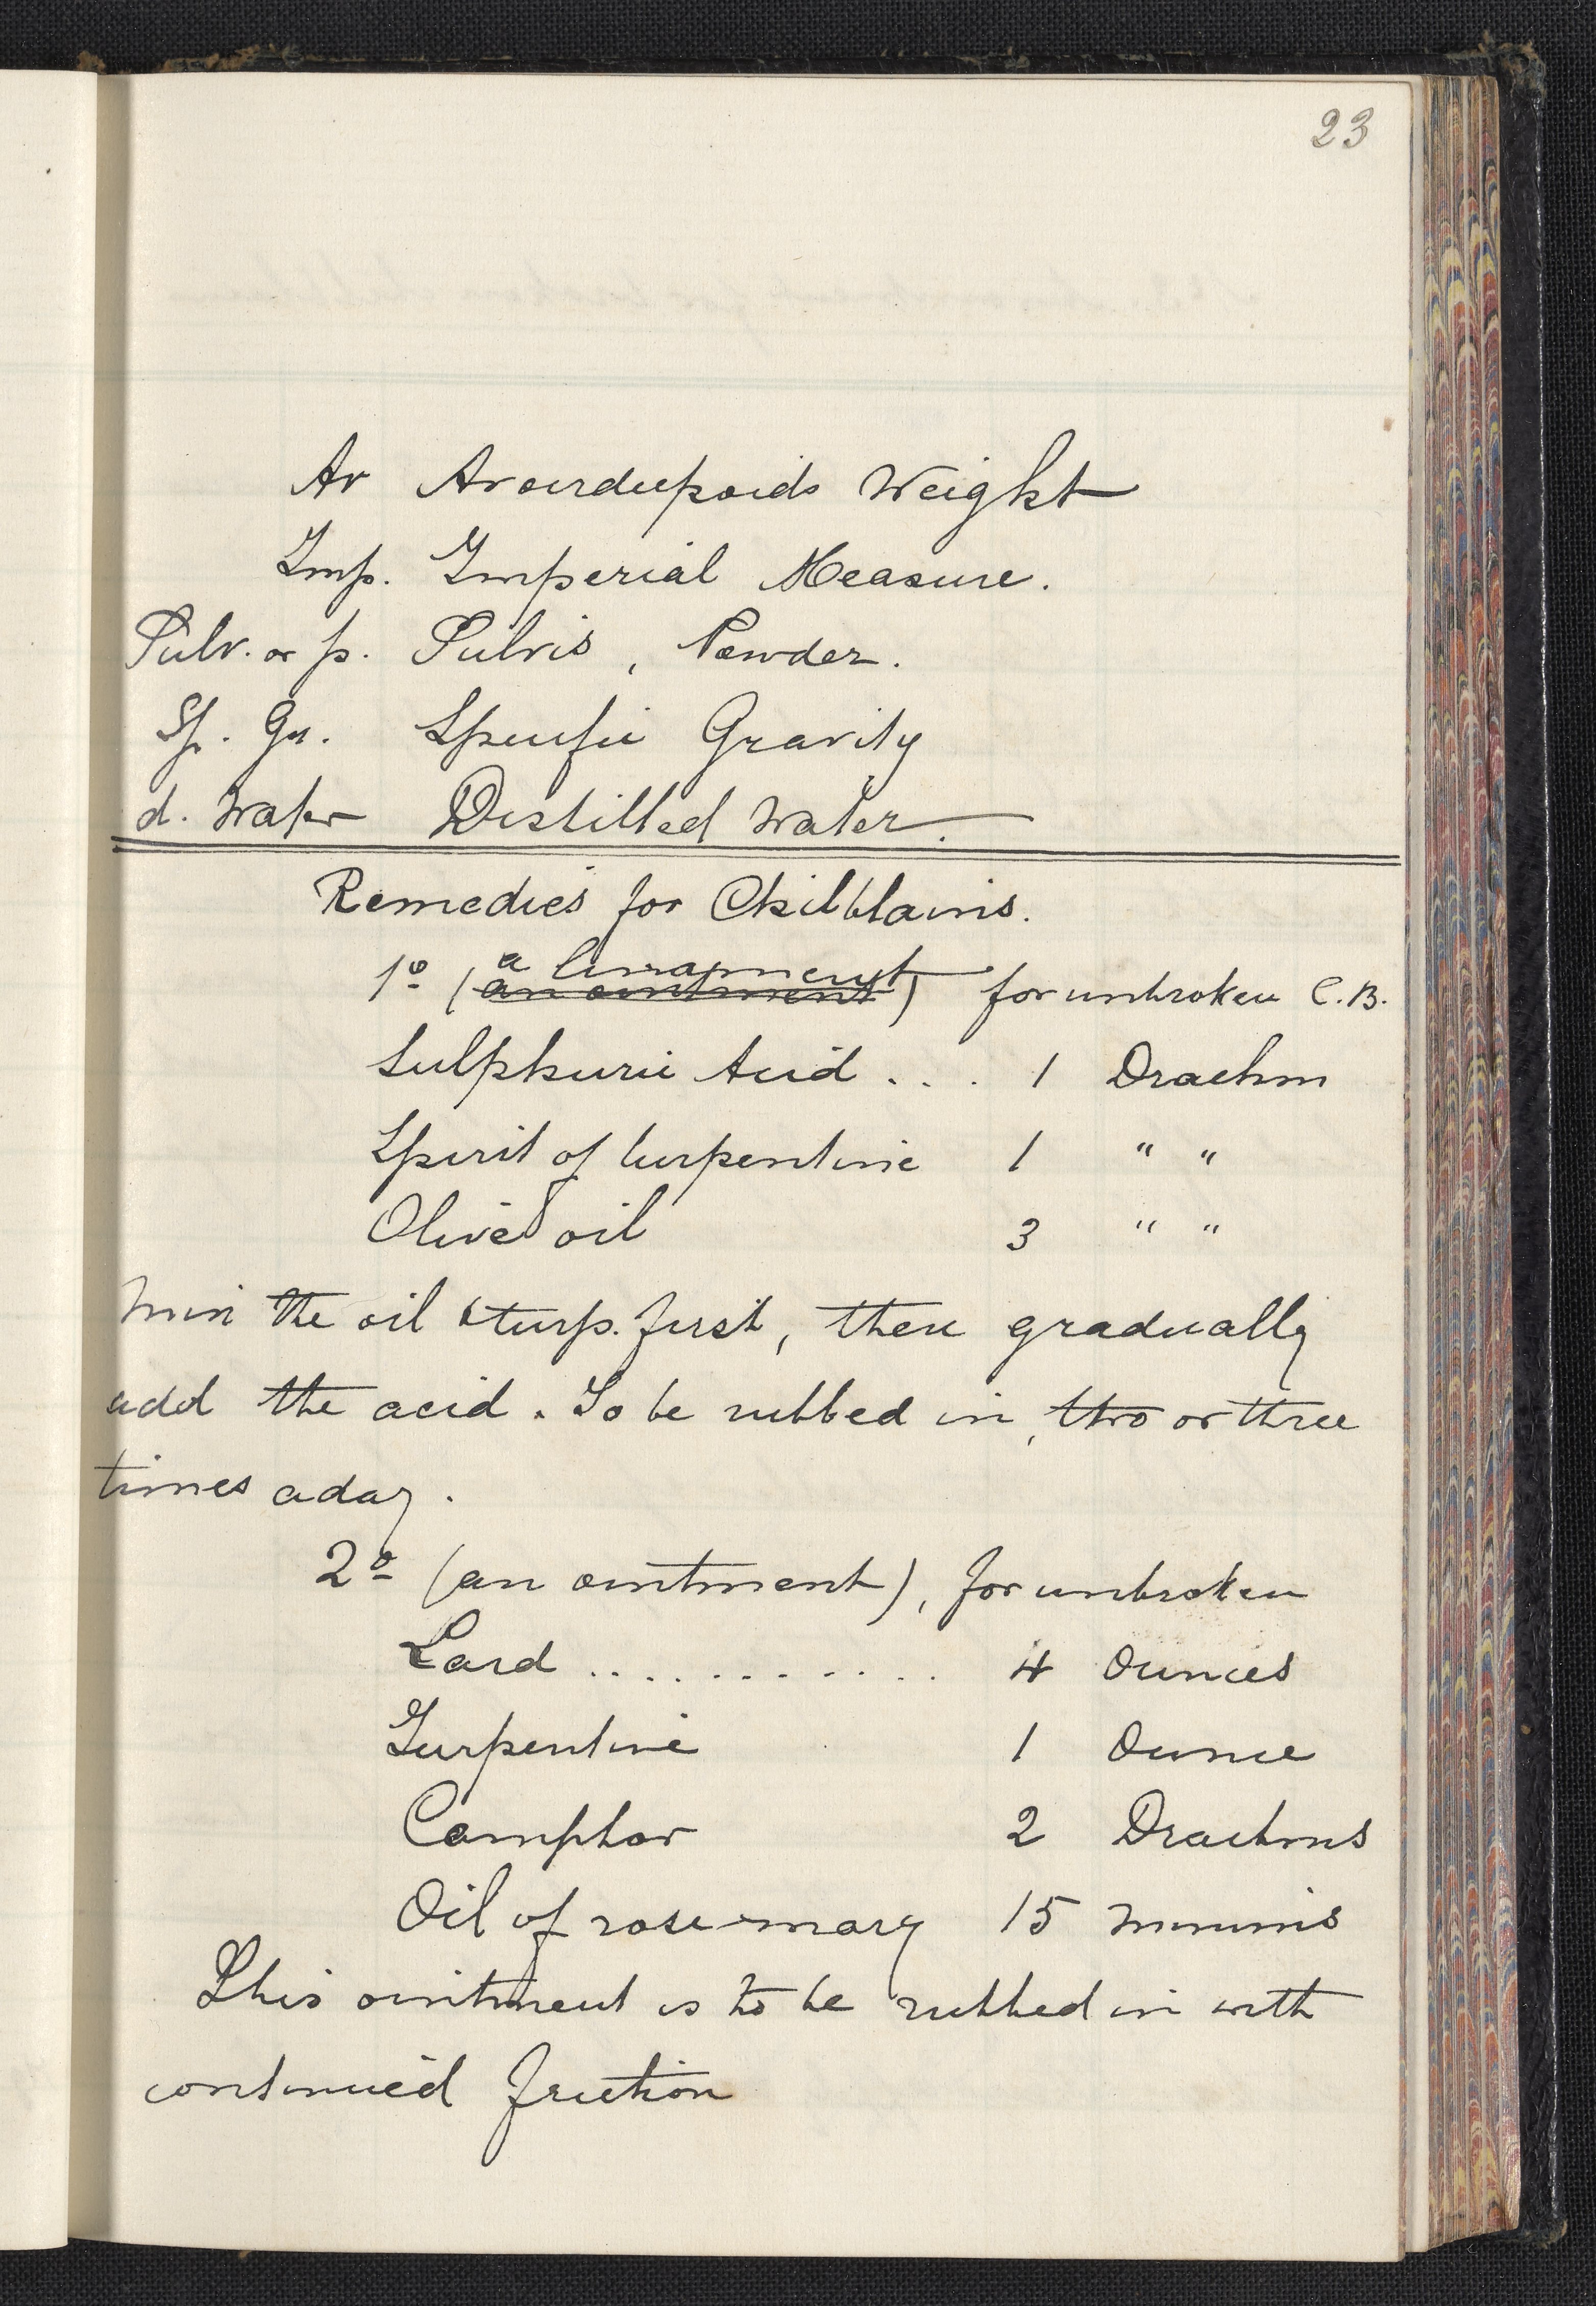 23
Av Avoirdupoids Weight
Imp. Imperial Measure.
Pulv. or p. Pulvis, Powder.
Sp. Gr. Specific Gravity
d. Water Distilled Water.
Remedies for Chilblains.
a linament
1º (an ointment) for unbroken C.B.
Sulphuric Acid . . . 1 Drachm
Spirit of turpentine 1 " "
Olive oil 3 " "
Mix the oil & turp. first, then gradually
add the acid. To be rubbed in, two or three
times a day.
2º (an ointment), for unbroken
Lard ............ 4 Ounces
Turpentine 1 Ounce
Camphor 2 Drachms
Oil of rosemary 15 minims
This ointment is to be rubbed in with
continued friction